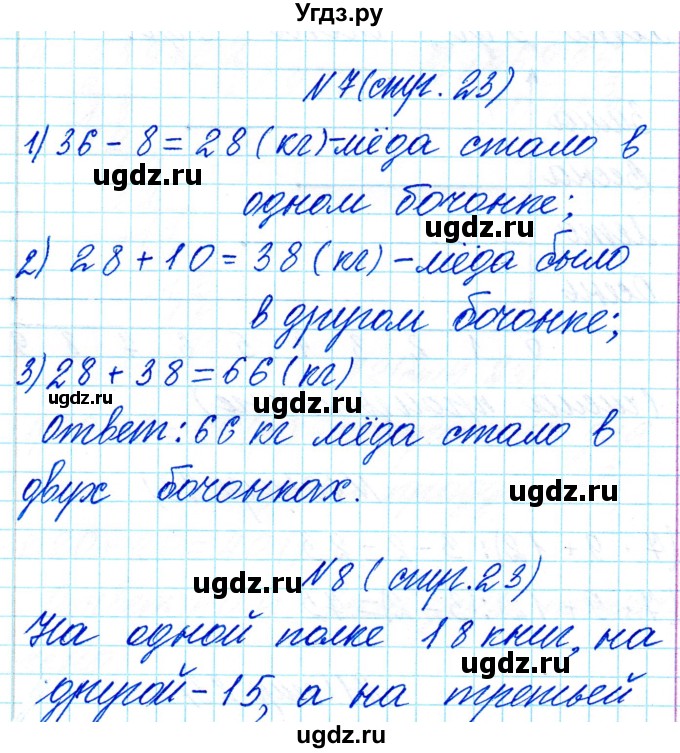 Угдз.ру
N7(стр. 23)
1) 36 - 8 = 28 (кг)-мёда стало в
ugdz.ru
одном бочонке;
ugdz.ru
2) 28 + 10 = 38 (кг) - мёда было
в другом бочонке;
3) 28 + 38 = 66 (кг)
ugdz.ru
ugdz.ru
Ответ: 66 кг мёда стало в
двух бочонках.
ugdz.ru
N8 ( стр.23)
ugdz.ru
На одной полке 18 книг, на
ugdz.ru
другой - 15, а на третьей